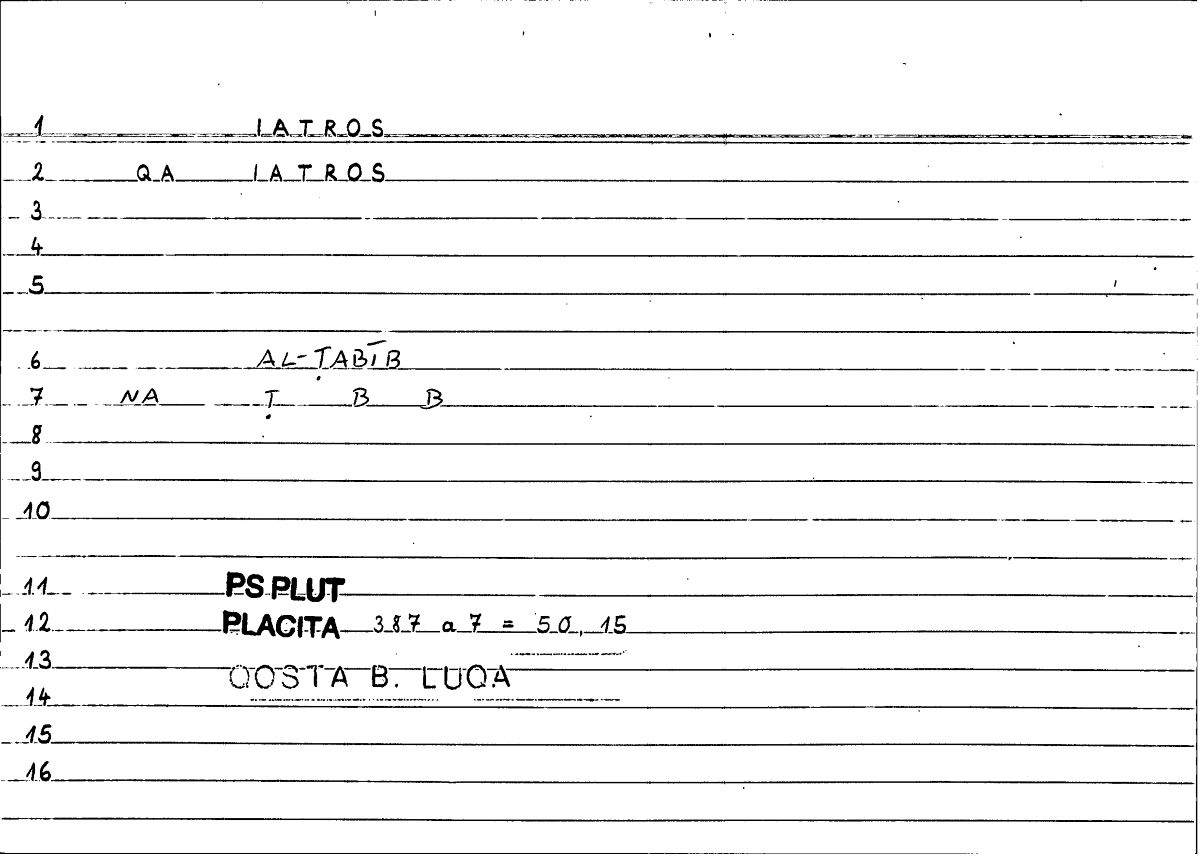 1 IATROS
2 QA IATROS
3
4
5
6 AL-ṬABĪB
7 NA Ṭ B B
8
9
10
11 PS PLUT
12 PLACITA 387 a 7 = 50, 15
13 QOSTA B. LUQA
14
15
16